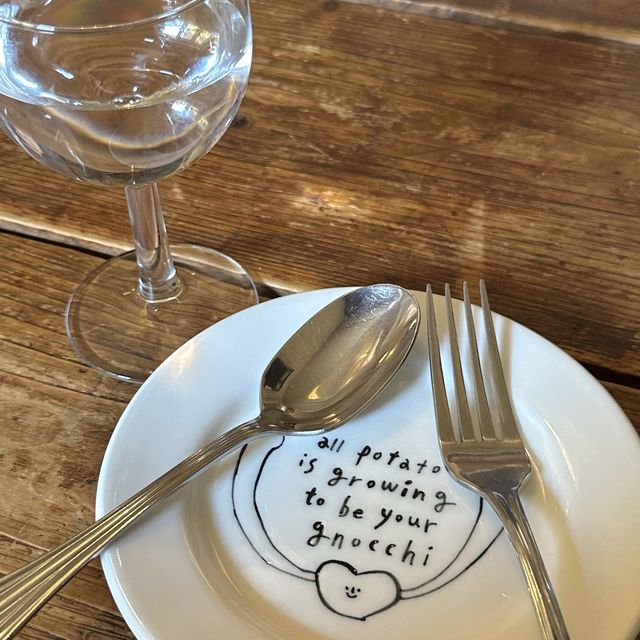 all potato
is growing
to be your
gnocchi